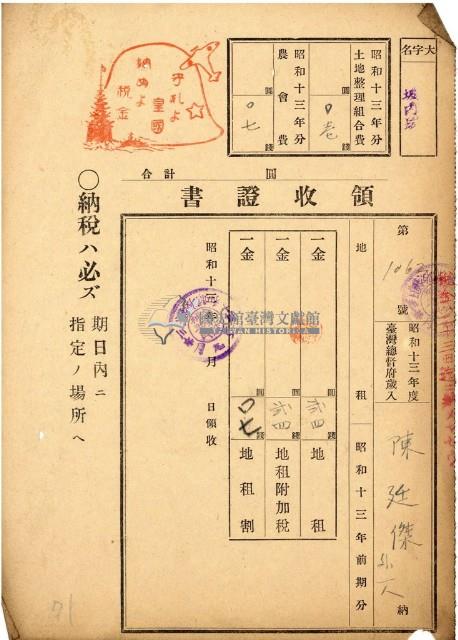 大字名
昭和十三年分
土地整理組合費
圓
〇壱
錢
昭和十三年分
農會費
圓
〇七
錢
守れよ
皇國
納めよ
税金
合計 圓
領收證書
第 106 號
昭和十三年度
臺灣總督府歲入
陳廷傑
外一人
納
地租
昭和十三年前期分
一金 圓 貳四 錢 地租
一金 圓 貳四 錢 地租附加税
一金 圓 〇七 錢 地租割
昭和十三年 月 日領收
國史館臺灣文獻館
TAIWAN HISTORICA
〇納税ハ必ズ
期日內ニ
指定ノ場所ヘ
71